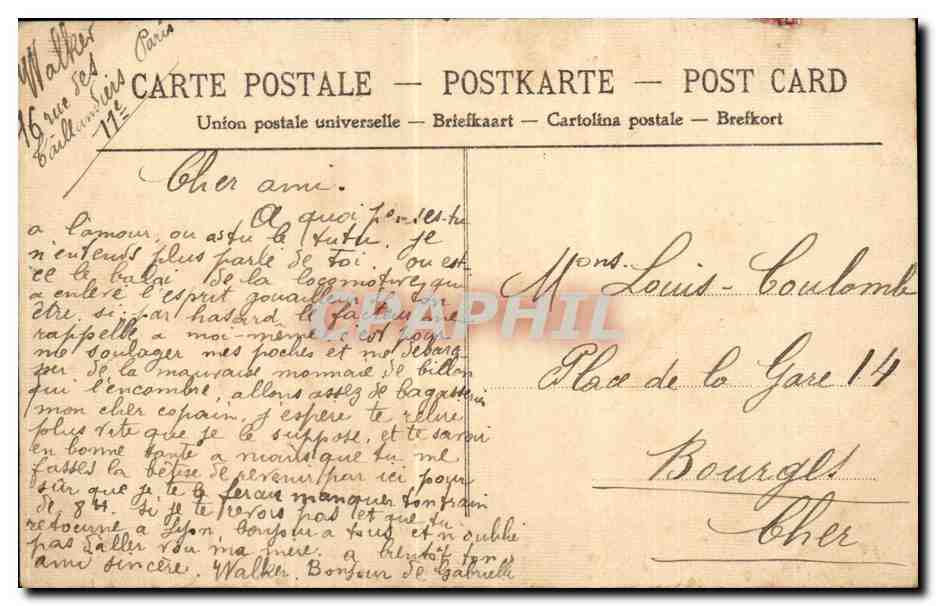 Walker
16 rue des
Taillandiers Paris
11e
CARTE POSTALE — POSTKARTE — POST CARD
Union postale universelle — Briefkaart — Cartolina postale — Brefkort
Cher ami.
A quoi penses-tu
a l'amour, ou astu le tutu. je
n'entends plus parlé de toi. ou est-
ce le balai de la locomotive qui
a enlevé l'esprit gouailleur de ton
être. si par hasard le facteur me
rappelle a moi-même c'est pour
me soulager mes poches et me débarras
ser de la mauvaise monnaie de billon
qui l'encombre, allons assez de bagasserie
mon cher copain, j'espère te relire
plus vite que je le suppose, et te savoir
en bonne santé a moins que tu me
fasses la bêtise de revenir par ici pour
sûr que je te ferai manquer ton train
de 8H. si je te revois pas et que tu
retourne a Lyon, bonjour a tous et n'oublie
pas d'aller voir ma mère. a bientôt ton
ami sincère. Walker. Bonjour de Gabrielle
Mons. Louis-Coulomb
Place de la Gare 14
Bourges
Cher
CPAPHIL